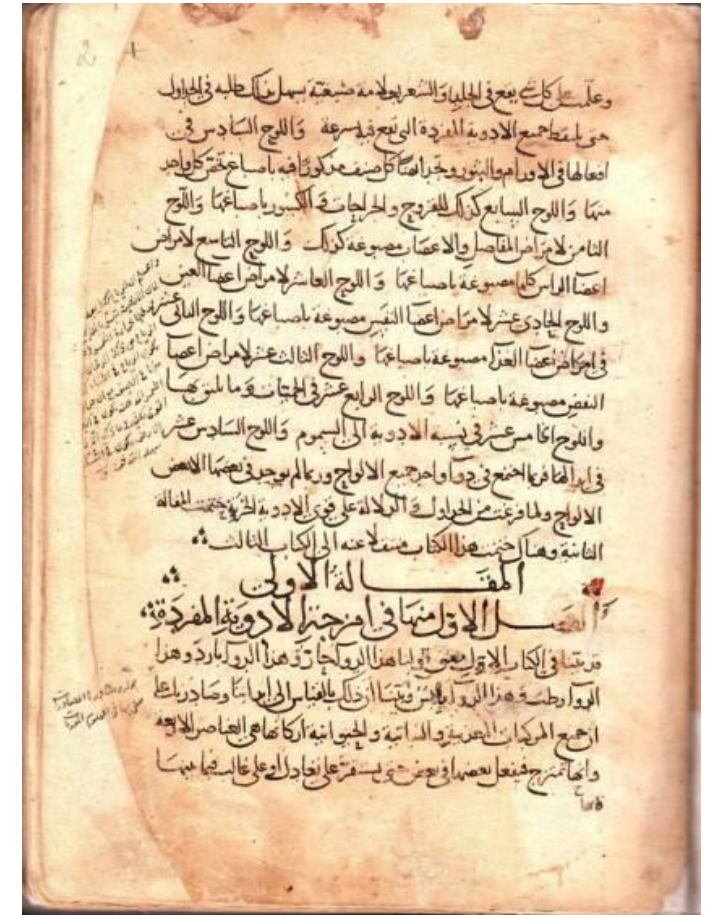 2
وعلّمت على كل شيء يقع في الجلد والشعر بعلامة صبغية يسهل بذلك طلبه في الجداول
حتى يلتقط جميع الادوية المفردة التي تقع فيه بسرعة واللوح السادس في
افعالها في الاورام والبثور وتجد ايضا كل صنف مذكورا فيه باصباغ تخص كل واحد
منها واللوح السابع كذلك للقروح والجراحات والكسور باصباغها واللوح
الثامن لامراض المفاصل والاعصاب مصبوغة كذلك واللوح التاسع لامراض
اعضا الراس كلها مصبوغة باصباغها واللوح العاشر لامراض اعضا العين
واللوح الحادي عشر لامراض اعضا النفس مصبوغة باصباغها واللوح الثاني عشر
في امراض اعضا الغذا مصبوغة باصباغها واللوح الثالث عشر لامراض اعضا
النفض مصبوغة باصباغها واللوح الرابع عشر في الحميات وما يليق بها
واللوح الخامس عشر في نسبة الادوية الى السموم واللوح السادس عشر
في ابدالها فربما اجتمع في دوا واحد جميع الالواح وربما لم يوجد في بعضها الا بعض
الالواح ولما فرغت من الجداول والدلالة على قوى الادوية الجزية ختمت المقالة
الثانية وهناك ختمت هذا الكتاب منتقلا عنه الى الكتاب الثالث
المقالة الاولى
الفصل الاول منها في امزجة الادوية المفردة
قد بينا في الكتاب الاول معنى قولنا هذا الدوا حار وهذا الدوا بارد وهذا
الدوا رطب وهذا الدوا يابس وبينا ان ذلك بالقياس الى ابداننا وصادرنا على
ان جميع المركبات المعدنية والنباتية والحيوانية اركانها هي العناصر الاربعة
وانها تمتزج فيفعل بعضها في بعض حتى يستقر على تعادل او على غالب فيما بينها